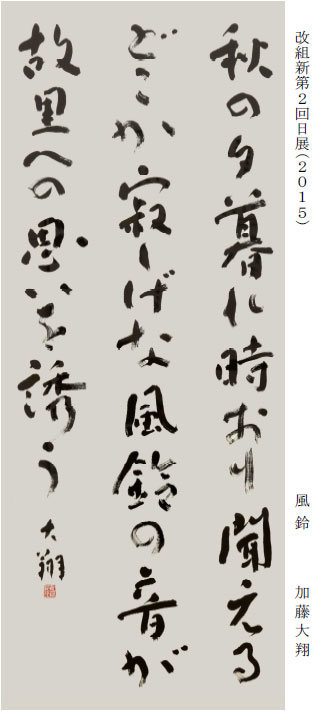 改組新第2回日展(2015)
風鈴 加藤大翔
秋の夕暮に時おり聞える
どこか寂しげな風鈴の音が
故里への思いを誘う
大翔